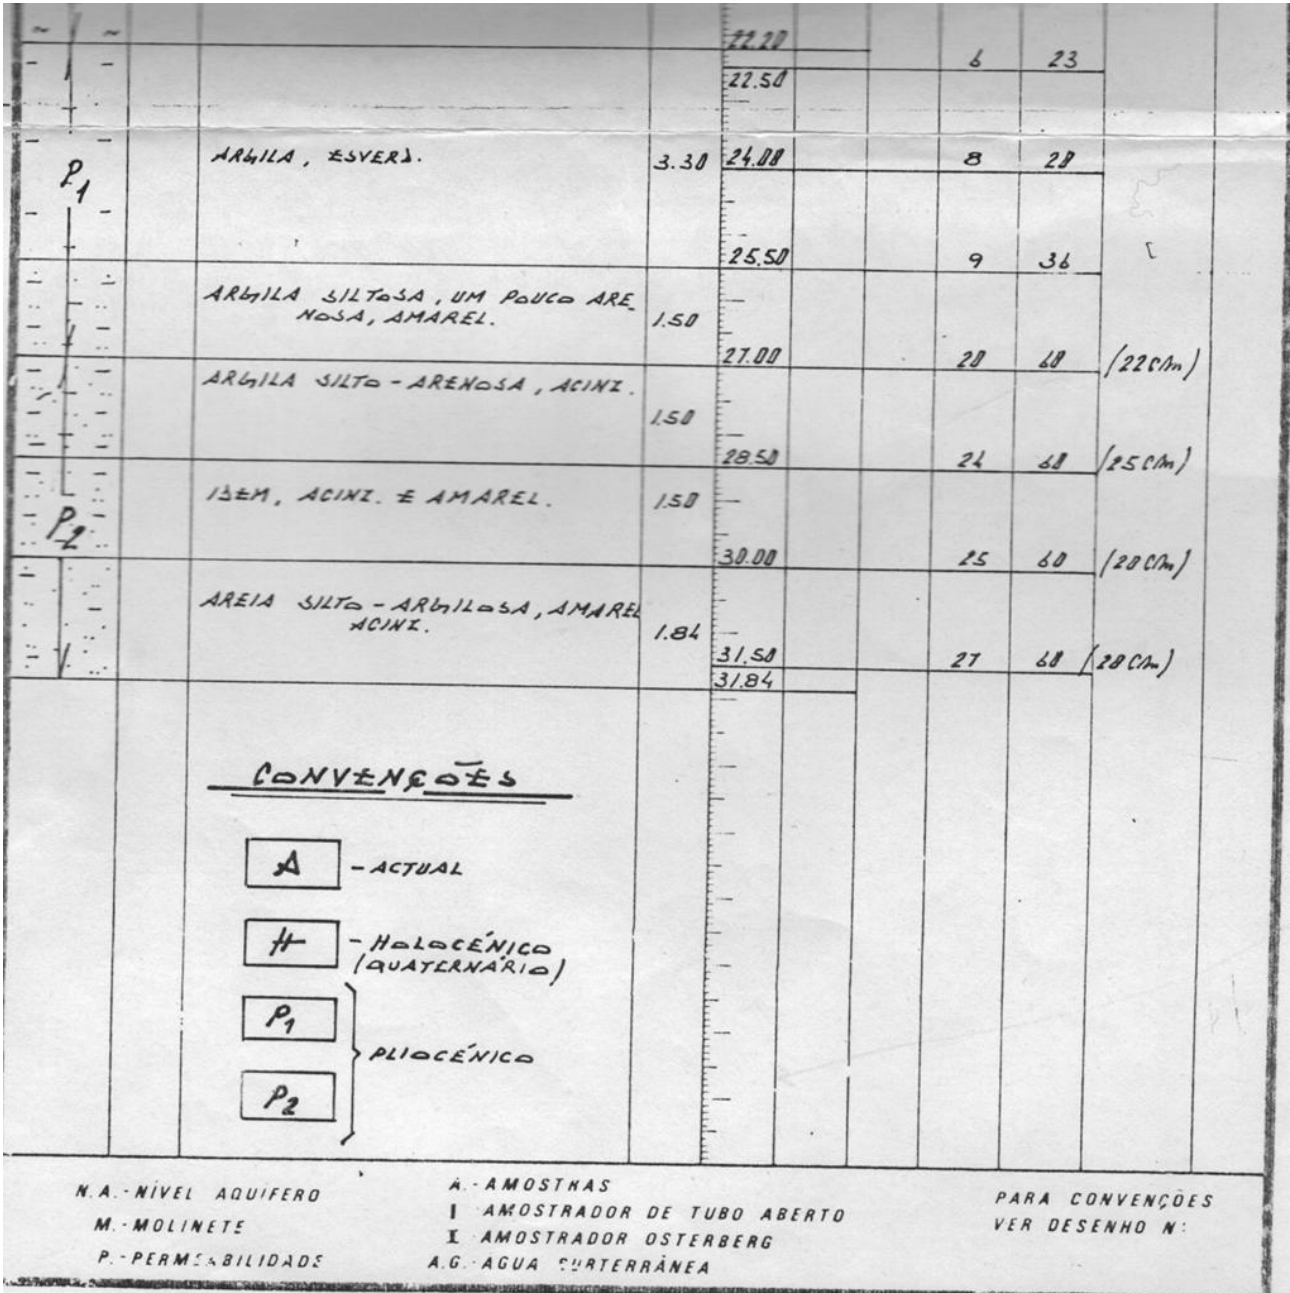 22.20
6 23
22.50
P1 ARGILA, ESVERD. 3.30 24.00 8 20
25.50 9 36
ARGILA SILTOSA, UM POUCO ARE
NOSA, AMAREL. 1.50
27.00 20 60 (22 cm)
ARGILA SILTO-ARENOSA, ACINZ.
1.50
28.50 24 60 (25 cm)
IDEM, ACINZ. E AMAREL. 1.50
P2
30.00 25 60 (20 cm)
AREIA SILTO-ARGILOSA, AMAREL
ACINZ. 1.84
31.50 27 60 (28 cm)
31.84
CONVENÇÕES
A - ACTUAL
H - HOLOCÉNICO
(QUATERNÁRIO)
P1
PLIOCÉNICO
P2
N.A. - NÍVEL AQUÍFERO
M. - MOLINETE
P. - PERMEABILIDADE
A. - AMOSTRAS
I AMOSTRADOR DE TUBO ABERTO
I AMOSTRADOR OSTERBERG
A.G. - ÁGUA SUBTERRÂNEA
PARA CONVENÇÕES
VER DESENHO Nº